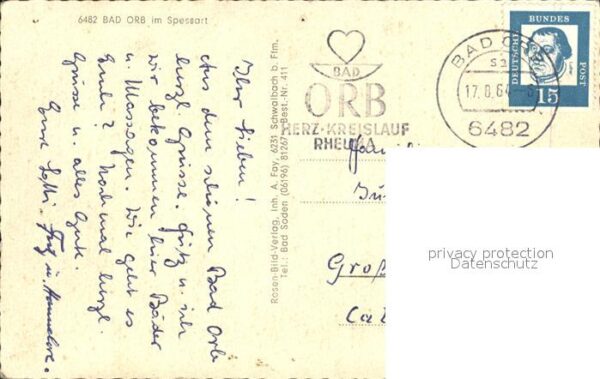 6482 BAD ORB im Spessart
Ihr Lieben!
Aus dem schönen Bad Orb
herzl. Grüsse. Fritz u. ich
wir bekommen hier Bäder
u. Massagen. Wie geht es
Euch? Nochmal herzl.
Grüsse u. alles Gute.
Eure Lotti. Fritz u. Hannelore.
Rosen-Bild-Verlag, Inh. A. Fay, 6231 Schwalbach b. Ffm.
Tel.: Bad Soden (06196) 81267 Best.-Nr. 411
BAD
ORB
HERZ-KREISLAUF
RHEUMA
BAD ORB
17.8.64
6482
DEUTSCHE
BUNDES
POST
15
Groß
privacy protection
Datenschutz